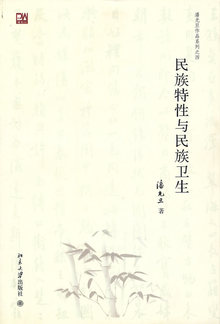 潘光旦作品系列之四
民族特性与民族卫生
潘光旦 著
北京大学出版社